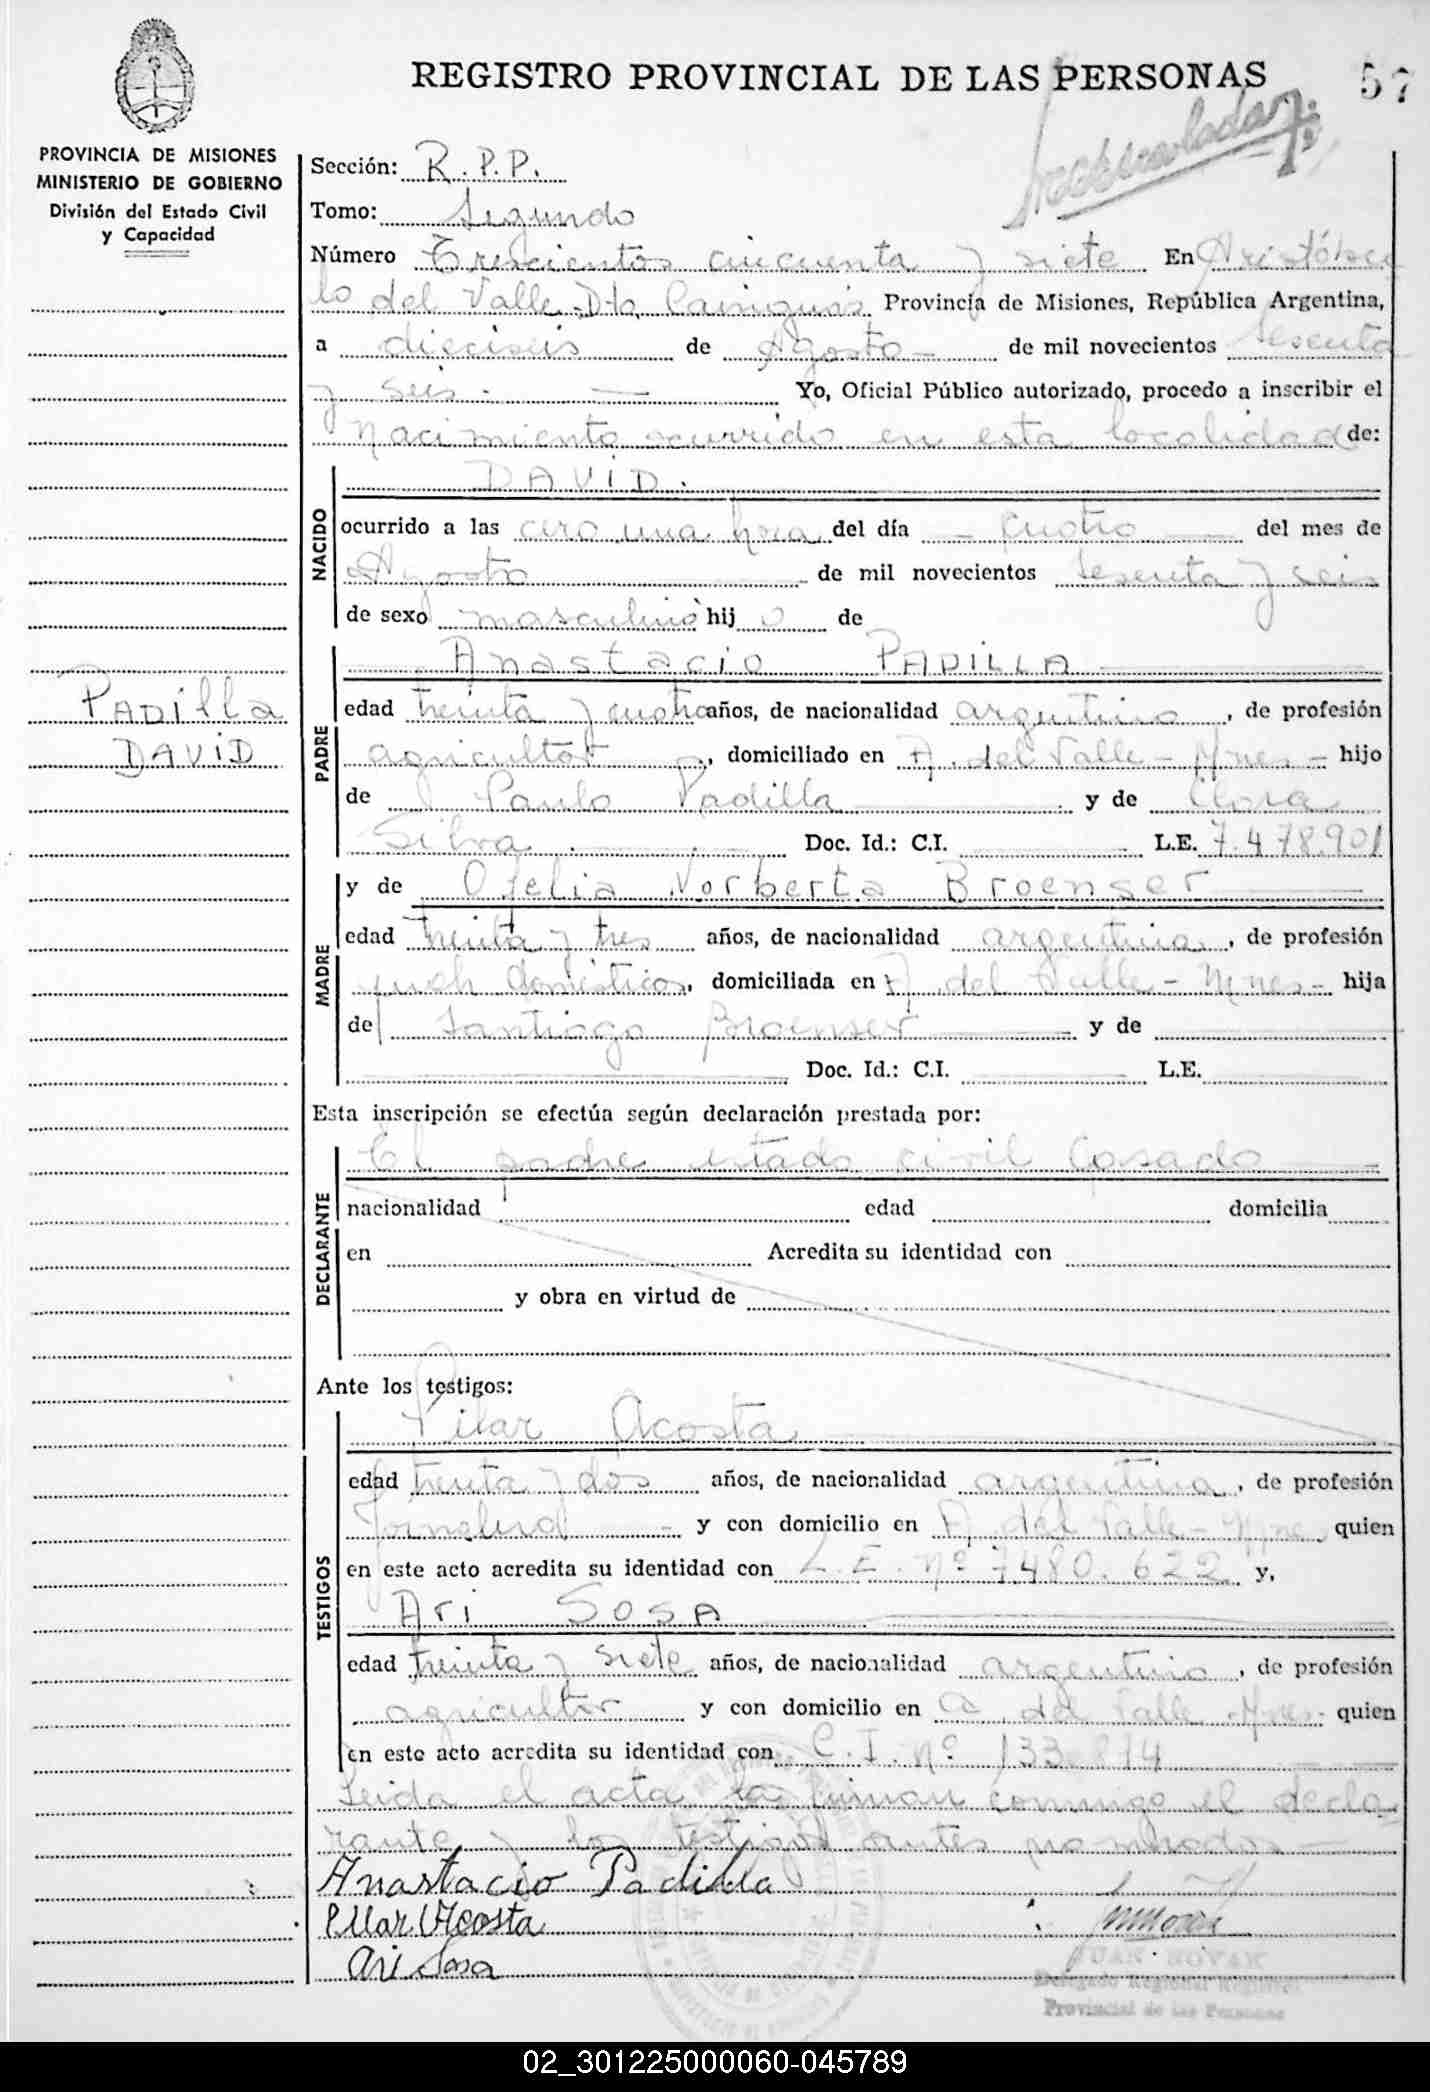 REGISTRO PROVINCIAL DE LAS PERSONAS
57
PROVINCIA DE MISIONES
MINISTERIO DE GOBIERNO
División del Estado Civil
y Capacidad
Sección: R.P.P.
Tomo: Segundo
Número Trescientos cincuenta y siete En Aristóbu
lo del Valle Dto. Cainguás Provincia de Misiones, República Argentina,
a dieciseis de Agosto de mil novecientos sesenta
y seis. Yo, Oficial Público autorizado, procedo a inscribir el
Nacimiento ocurrido en esta localidad de:
NACIDO
DAVID.
ocurrido a las cero una hora del día cuatro del mes de
Agosto de mil novecientos sesenta y seis
de sexo masculino hijo de
PADRE
Anastacio PADILLA
PADILLA
DAVID
edad treinta y cuatro años, de nacionalidad argentino, de profesión
agricultor, domiciliado en A. del Valle - Mnes - hijo
de Paulo Padilla y de Clora
Silva Doc. Id.: C.I. L.E. 7.478.901
MADRE
y de Ofelia Norberta Broenser
edad treinta y tres años, de nacionalidad argentina, de profesión
queh. domésticos, domiciliada en A. del Valle - Mnes - hija
de Santiago Broenser y de
Doc. Id.: C.I. L.E.
Esta inscripción se efectúa según declaración prestada por:
DECLARANTE
El padre estado civil casado
nacionalidad edad domicilia
en Acredita su identidad con
y obra en virtud de
Ante los testigos:
TESTIGOS
Pilar Acosta
edad treinta y dos años, de nacionalidad argentina, de profesión
y con domicilio en A. del Valle - Mnes quien
en este acto acredita su identidad con L.E. Nº 7480.622 y,
Ari SOSA
edad treinta y siete años, de nacionalidad argentino, de profesión
agricultor y con domicilio en A. del Valle - Mnes - quien
en este acto acredita su identidad con C.I. Nº 133.874
Leida el acta la firman conmigo el decla
rante y los testigos antes nombrados
Anastacio Padilla
Pilar Acosta
Ari Sosa
JUAN NOVAK
Delegado Regional Registro
Provincial de las Personas
02_301225000060-045789